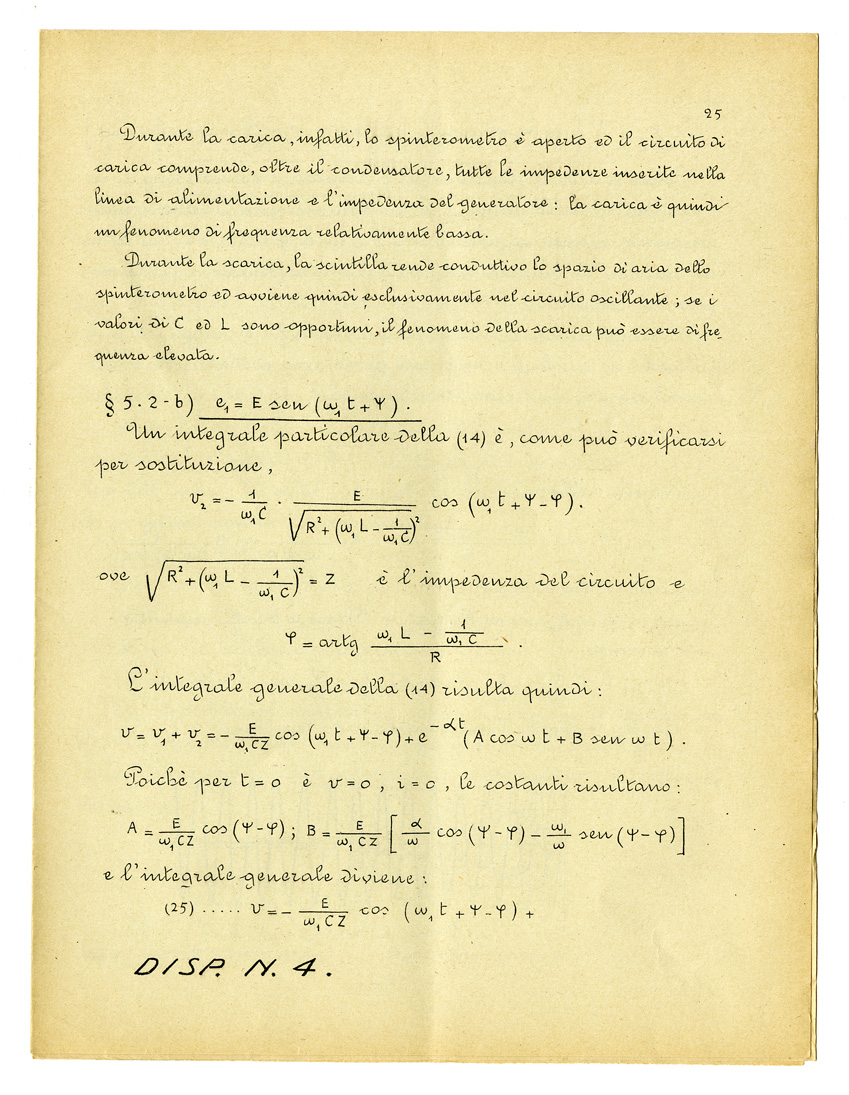 25
Durante la carica, infatti, lo spinterometro è aperto ed il circuito di
carica comprende, oltre il condensatore, tutte le impedenze inserite nella
linea di alimentazione e l'impedenza del generatore: la carica è quindi
un fenomeno di frequenza relativamente bassa.
Durante la scarica, la scintilla rende conduttivo lo spazio di aria dello
spinterometro ed avviene quindi esclusivamente nel circuito oscillante; se i
valori di C ed L sono opportuni, il fenomeno della scarica può essere di fre_
quenza elevata.
§ 5.2-b) e₁ = E sen (ω₁ t + Ψ).
Un integrale particolare della (14) è, come può verificarsi
per sostituzione,
v₂ = - 1/(ω₁C) · E/√(R² + (ω₁ L - 1/(ω₁C))²) cos (ω₁ t + Ψ - φ).
ove √(R² + (ω₁ L - 1/(ω₁ C))²) = Z è l'impedenza del circuito e
φ = artg (ω₁ L - 1/(ω₁ C))/R .
L'integrale generale della (14) risulta quindi:
v = v₁ + v₂ = - E/(ω₁CZ) cos (ω₁ t + Ψ - φ) + e^(-αt) (A cos ω t + B sen ω t).
Poichè per t = 0 è v = 0, i = 0, le costanti risultano:
A = E/(ω₁CZ) cos (Ψ - φ); B = E/(ω₁CZ) [α/ω cos (Ψ - φ) - ω₁/ω sen (Ψ - φ)]
e l'integrale generale diviene:
(25) ..... v = - E/(ω₁CZ) cos (ω₁ t + Ψ - φ) +
DISP. N. 4.